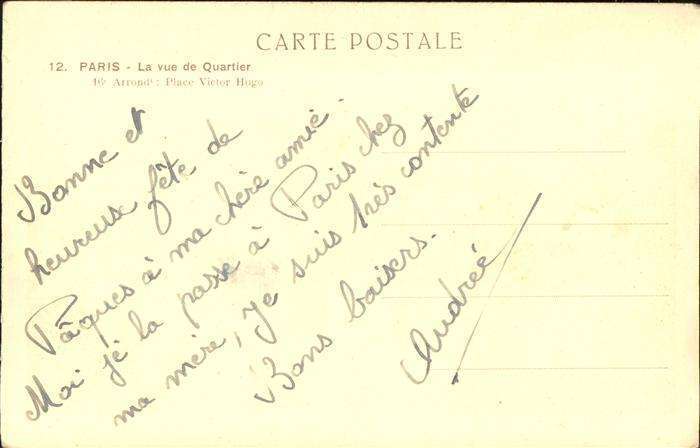 CARTE POSTALE
12. PARIS - La vue de Quartier
16e Arrondt : Place Victor Hugo
Bonne et
heureuse fête de
Pâques à ma chère amie.
Moi je la passe à Paris chez
ma mère, je suis très contente
Bons baisers.
Andrée